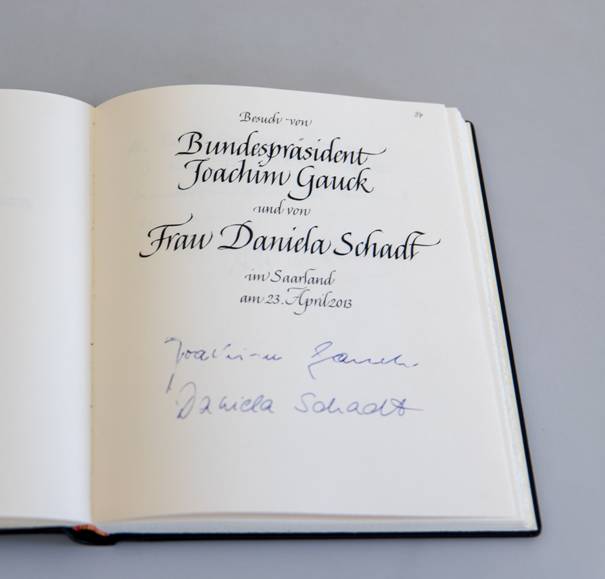 84
Besuch von
Bundespräsident
Joachim Gauck
und von
Frau Daniela Schadt
im Saarland
am 23. April 2013
Joachim Gauck
Daniela Schadt